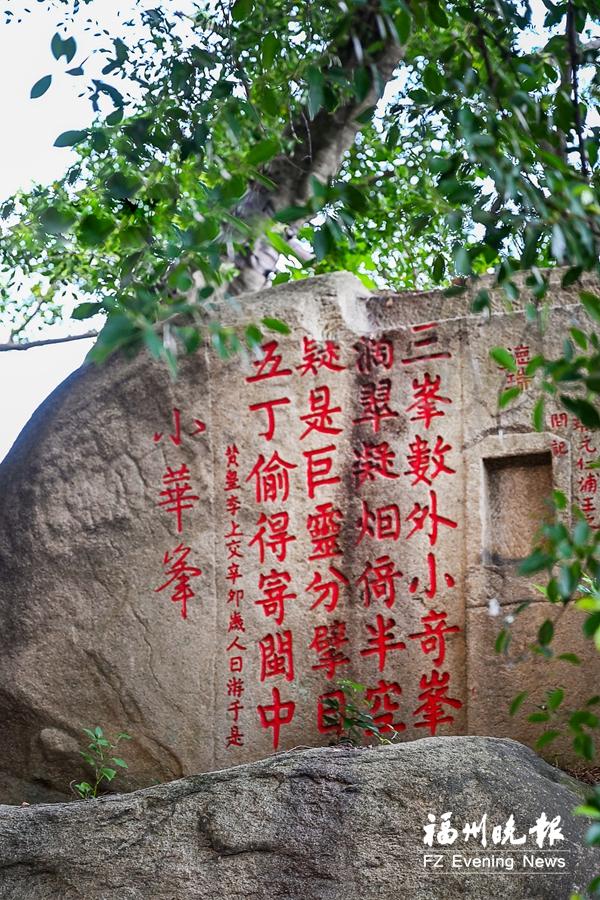 三峯數外小奇峯
潤翠凝烟倚半空
疑是巨靈分擘日
五丁偷得寄閩中
贊皇李上交辛卯歲人日游于是
小華峯
福州晚報
FZ Evening News